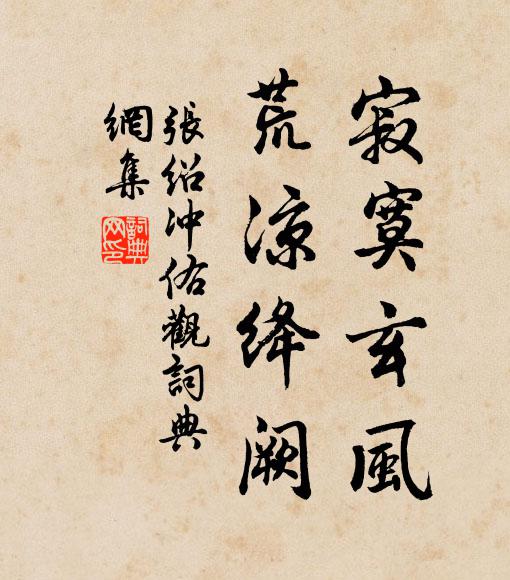 寂寞玄風
荒涼絳闕
張紹沖佑觀詞典
網集
詞典
网印